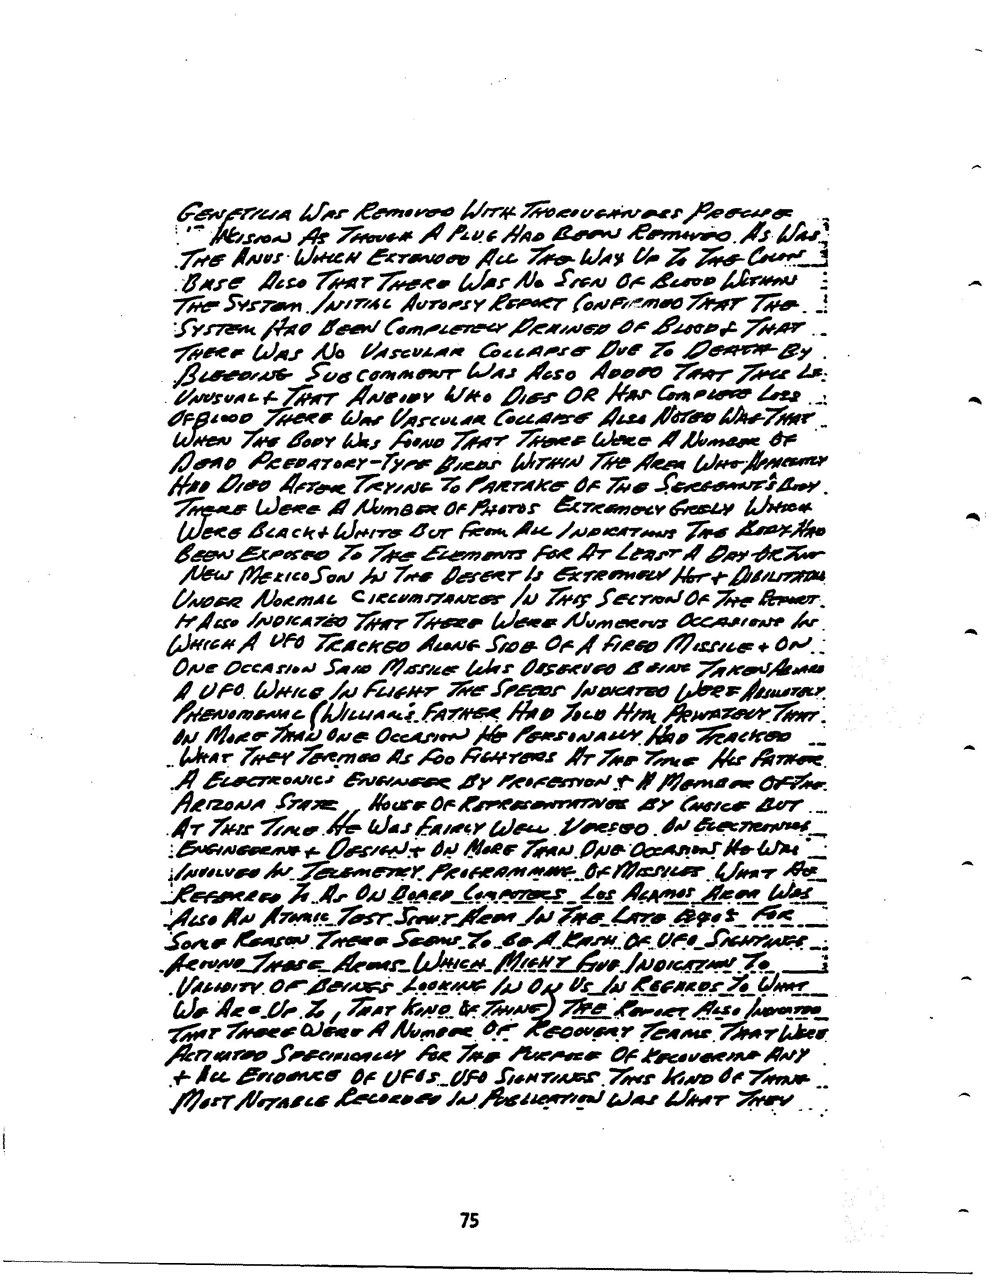 Genetilia Was Removed With Thoroughness Precise
Incision As Though A Plug Had Been Removed. As Was
The Anus Which Extended All The Way Up To The Colon
Base Also That There Was No Sign Of Blood Within
The System. Initial Autopsy Report Confirmed That The
System Had Been Completely Drained Of Blood + That
There Was No Vascular Collapse Due To Death By
Bleeding Subcomment Was Also Added That This Is
Unusual + That Anybody Who Dies OR Has Complete Loss
Of Blood There Was Vascular Collapse Also Noted Was That
When The Body Was Found That There Were A Number Of
Dead Predatory-Type Birds Within The Area Who Apparently
Had Died After Trying To Partake Of The Sergeant's Body.
There Were A Number Of Photos Extremely Grisly Which
Were Black + White But From All Indications The Body Had
Been Exposed To The Elements For At Least A Day Or Two
New Mexico Sun In The Desert Is Extremely Hot +
Under Normal Circumstances In This Section Of The Report.
It Also Indicated That There Were Numerous Occasions In
Which A UFO Tracked Along Side Of A Fired Missile + On
One Occasion Said Missile Was Observed Being Taken Aboard
A UFO While In Flight The Speeds Indicated Were Absolutely
Phenomenal (William's Father Had Told Him Privately That
On More Than One Occasion He Personally Had Tracked
What They Termed As Foo Fighters At The Time His Father
A Electronics Engineer By Profession + A Member Of The
Arizona State House Of Representatives By Choice But
At This Time He Was Fairly Well Versed On Electronics
Engineering + Design + On More Than One Occasion He Was
Involved In Telemetry Programming Of Missiles What He
Referred To As On Board Computers Los Alamos Area Was
Also An Atomic Test Area In The Late 1940's For
Some Reason There Seems To Be A Rash Of UFO Sightings
Around Those Areas Which Might Give Indication To
Validity Of Beings Looking In On Us In Regards To What
We Are Up To, That Kind Of Thing) The Report Also Indicated
That There Were A Number Of Recovery Teams That Were
Activated Specifically For The Purpose Of Recovering Any
+ All Evidence Of UFOs UFO Sightings This Kind Of Thing
Most Notable Recorded In Publication Was What They
75